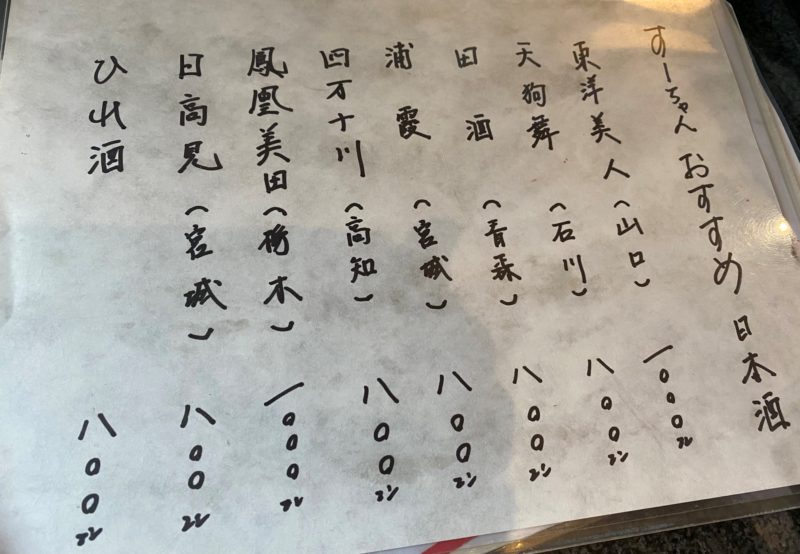 すーちゃん おすすめ 日本酒
東洋美人(山口) 一〇〇〇エン
天狗舞(石川) 八〇〇エン
田酒(青森) 八〇〇エン
浦霞(宮城) 八〇〇エン
四万十川(高知) 八〇〇エン
鳳凰美田(栃木) 一〇〇〇エン
日高見(宮城) 八〇〇エン
ひれ酒 八〇〇エン